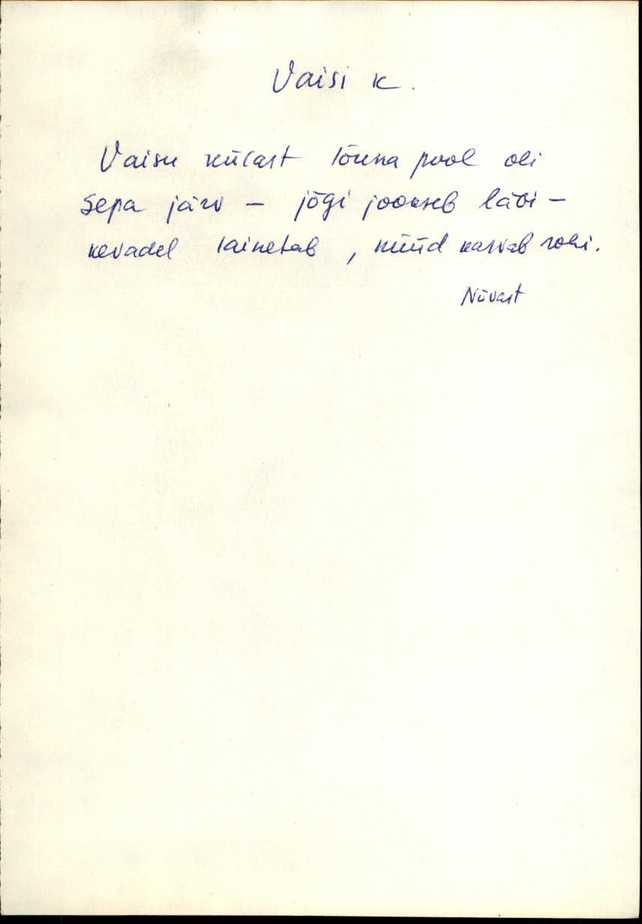 Vaisi k.
Vaisu külast lõuna pool oli
Sepa järv – jõgi jookseb läbi –
kevadel lainetab, nüüd kasvab rohi.
Nüvast